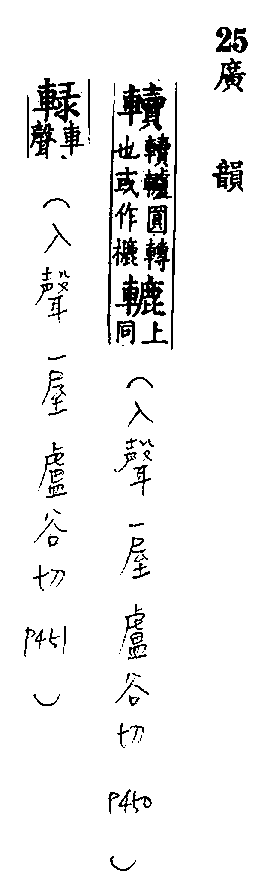 25 廣韻
𨏔 𨏔轤圓轉
也或作樚 轆 上
同 (入聲 一屋 盧谷切 P450)
𨌠 車
聲 (入聲 一屋 盧谷切 P451)